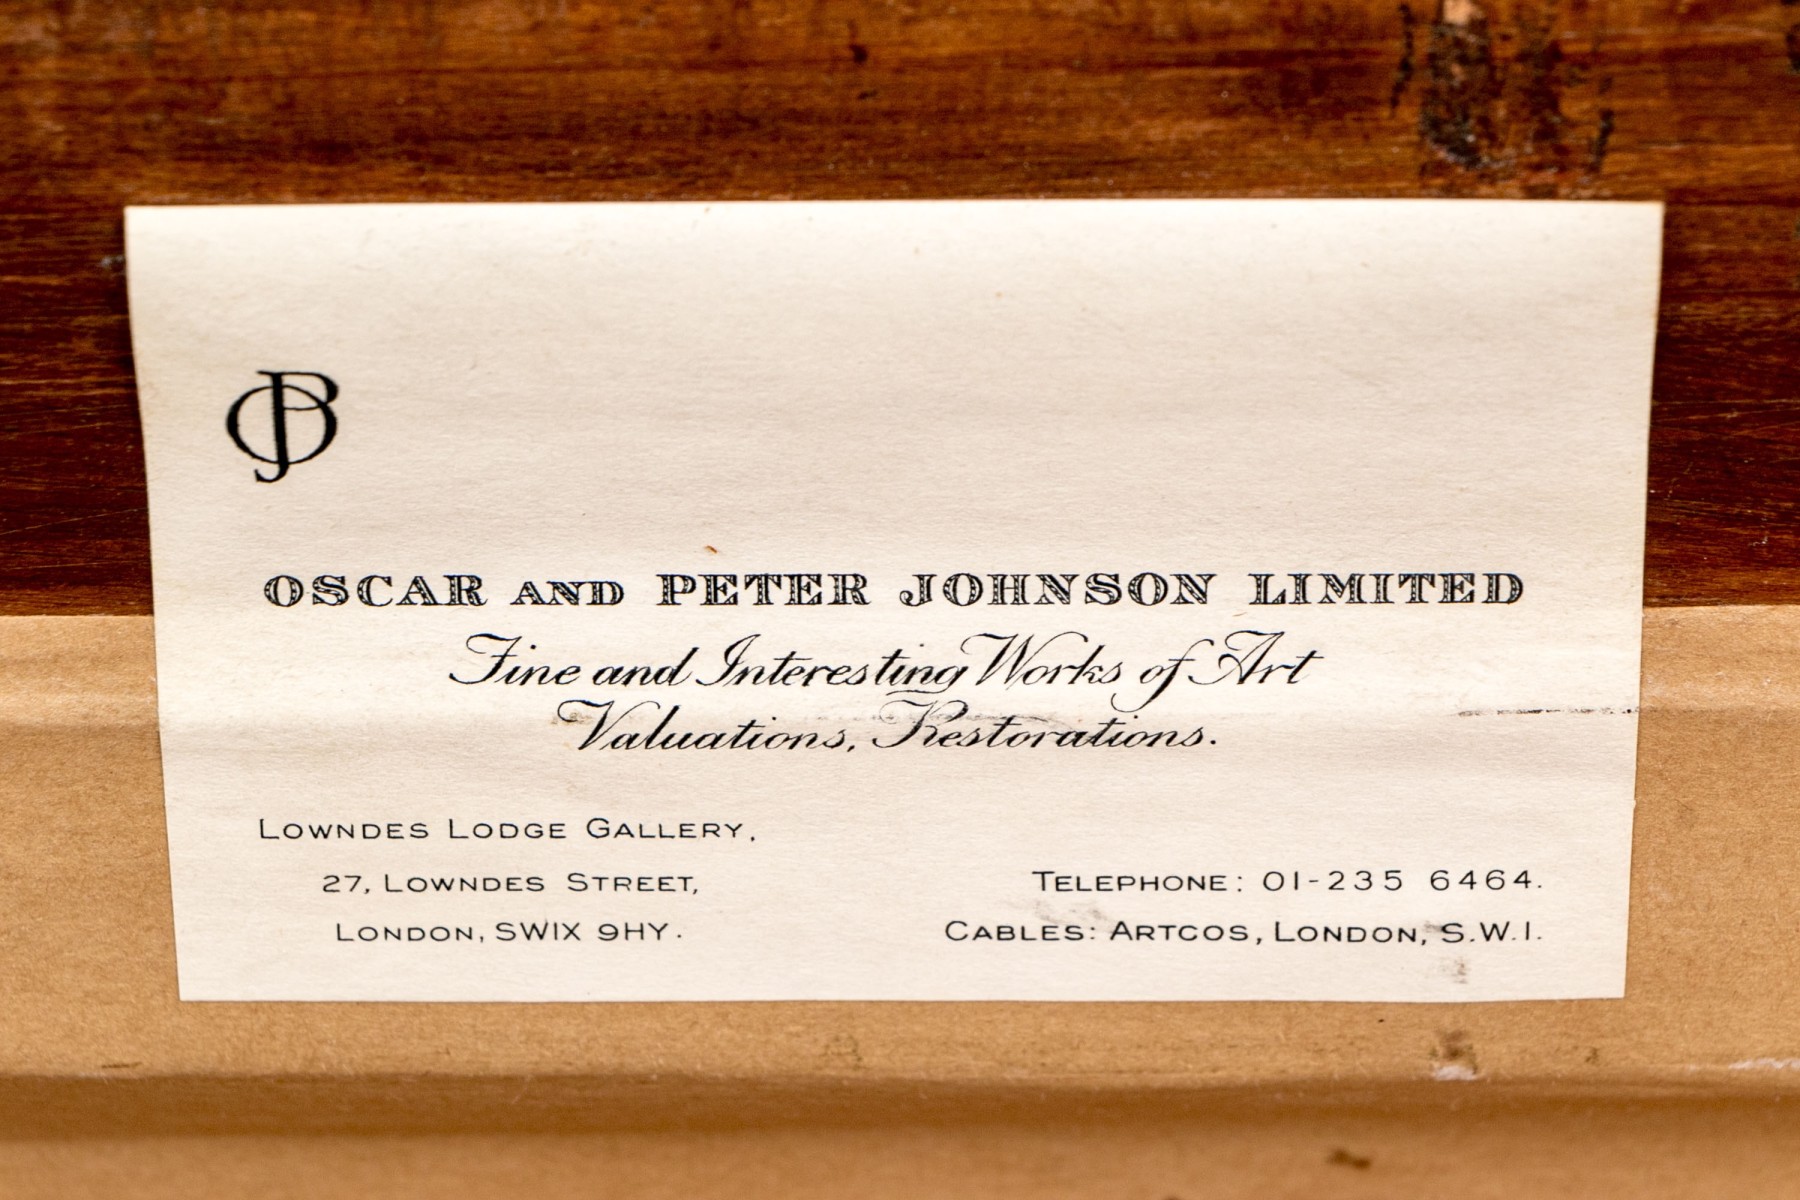 OSCAR AND PETER JOHNSON LIMITED
Fine and Interesting Works of Art
Valuations, Restorations.
LOWNDES LODGE GALLERY,
27, LOWNDES STREET,
LONDON, SW1X 9HY.
TELEPHONE: 01-235 6464.
CABLES: ARTCOS, LONDON, S.W.1.